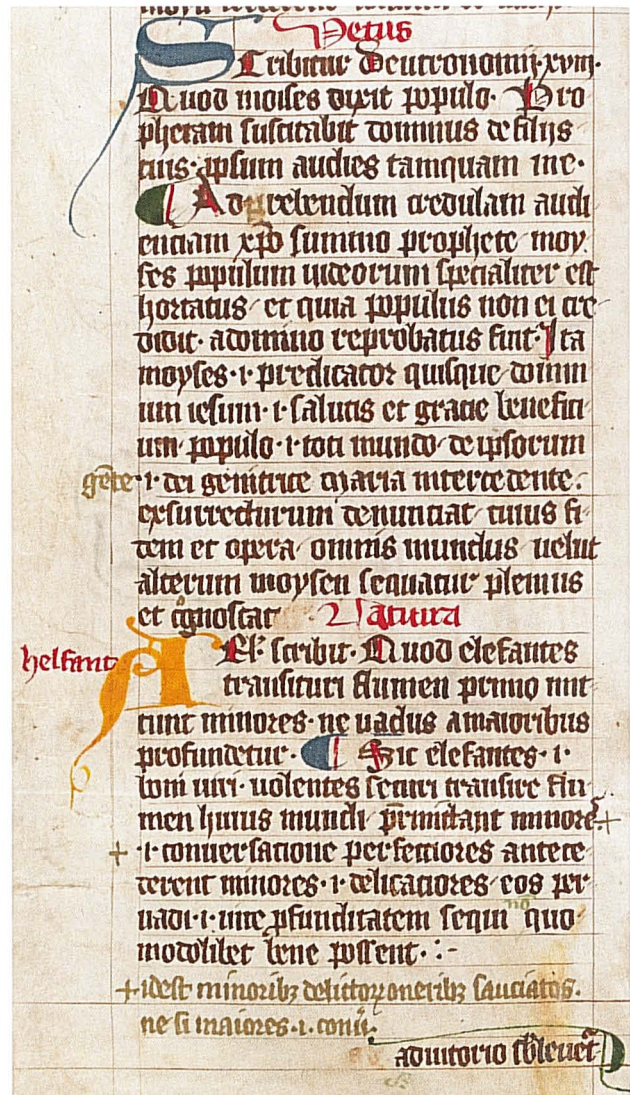 Vetus
Scribitur Deutronomij xviij.
Quod moises dixit populo. Pro
phetam suscitabit dominus de filijs
tuis. ipsum audies tamquam me.
Ad prebendum credulam audi
entiam xpo summo prophete moy
ses populum iudeorum specialiter est
hortatus et quia populus non ei cre
didit. adomino reprobatus fuit. Ita
moyses .i. predicator quisque domin
um iesum .i. salutis et gracie benefici
um populo .i. toti mundo de ipsorum
gēte .i. dei genitrice maria intercedente.
exsurrecturum denunciat cuius fi
dem et opera omnis mundus uelut
alterum moysen sequatur plenius
et cognoscat Natura
helfant
scribit. Quod elefantes
transituri flumen primo mit
tunt minores. ne uadus amaioribus
profundetur. Sic elefantes .i.
boni uiri. uolentes securi transire flu
men huius mundi p̄mittant minores +
+ .i. conuersacione perfectiores antece
derent minores .i. delicaciores eos per
uadi .i. uite ꝓfunditatem sequi quo
nō
modolibet bene possent. :-
+ idest minoribꝫ delictoꝝ oneribꝫ sauciatos.
ne si maiores .i.
adiutorio